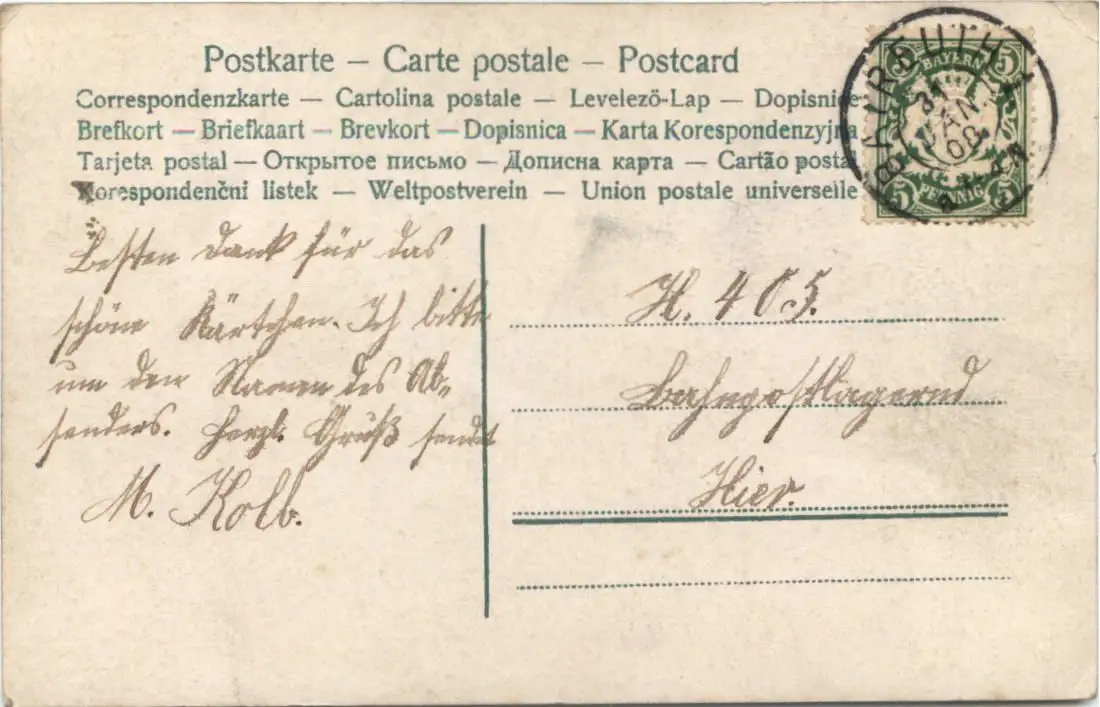 Postkarte – Carte postale – Postcard
Correspondenzkarte — Cartolina postale — Levelező-Lap — Dopisnice
Brefkort — Briefkaart — Brevkort — Dopisnica — Karta Korespondenzyjna
Tarjeta postal — Открытое письмо — Дописна карта — Cartão postal
Korespondenčni listek — Weltpostverein — Union postale universelle
BAIREUTH 1
31
JAN.
08
BAYERN
5 5
PFENNIG
5 5
Besten Dank für das
schöne Kärtchen. Ich bitte
um den Namen des Ab-
senders. Herzl. Gruß sendet
M. Kolb.
H. 405.
Bahnpostlagernd
Hier.